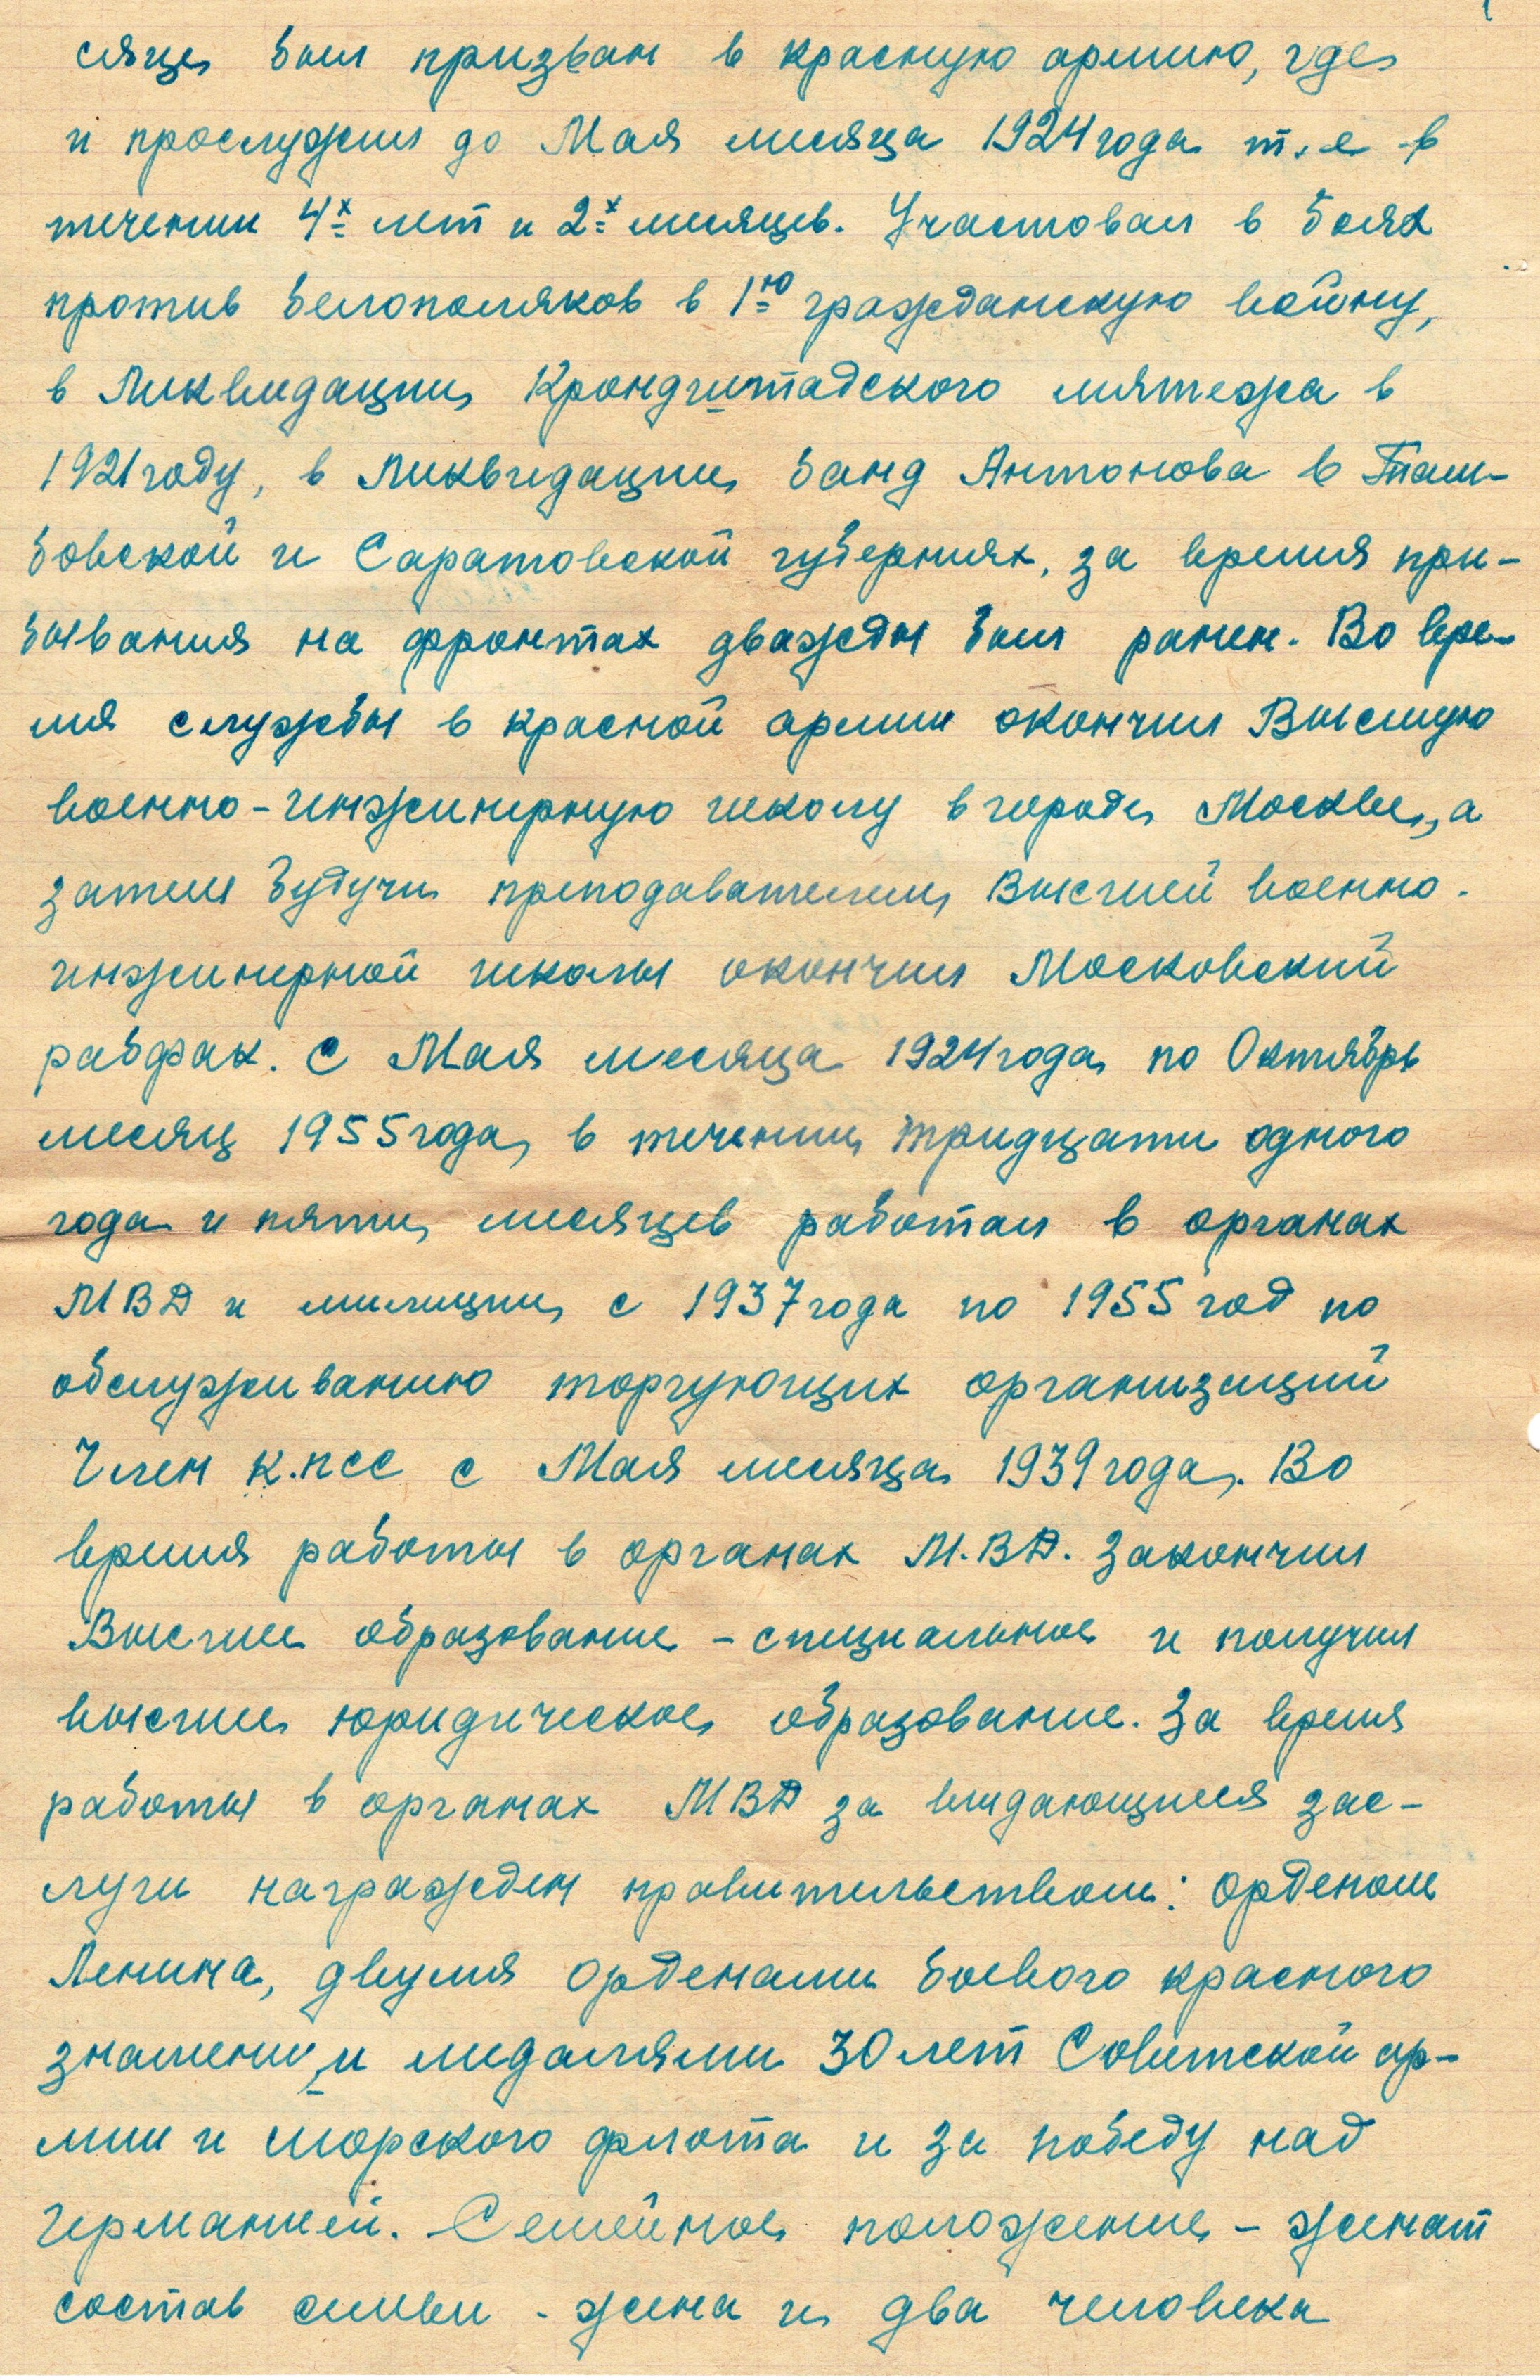 сяце был призван в красную армию, где
и прослужил до Мая месяца 1924 года т.е в
течении 4х лет и 2х месяцев. Участвовал в боях
против белополяков в 1ю гражданскую войну,
в Ликвидации Крондштадского мятежа в
1921 году, в Ликвидации банд Антонова в Там-
бовской и Саратовской губерниях, за время при-
бывания на фронтах дважды был ранен. Во вре-
мя службы в красной армии окончил Высшую
военно-инженерную школу в городе Москве, а
затем будучи преподавателем Высшей военно-
инженерной школы окончил Московский
рабфак. С Мая месяца 1924 года по Октябрь
месяц 1955 года, в течении тридцати одного
года и пяти месяцев работал в органах
МВД и милиции с 1937 года по 1955 год по
обслуживанию торгующих организаций
Член К.ПСС с Мая месяца 1939 года. Во
время работы в органах М.В.Д. закончил
Высшее образование - специальное и получил
высшее юридическое образование. За время
работы в органах МВД за выдающиеся зас-
луги награжден правительством: орденом
Ленина, двумя орденами боевого красного
знамени, и медалями 30 лет Советской ар-
мии и морского флота и за победу над
германией. Семейное положение - женат
состав семьи - жена и два человека